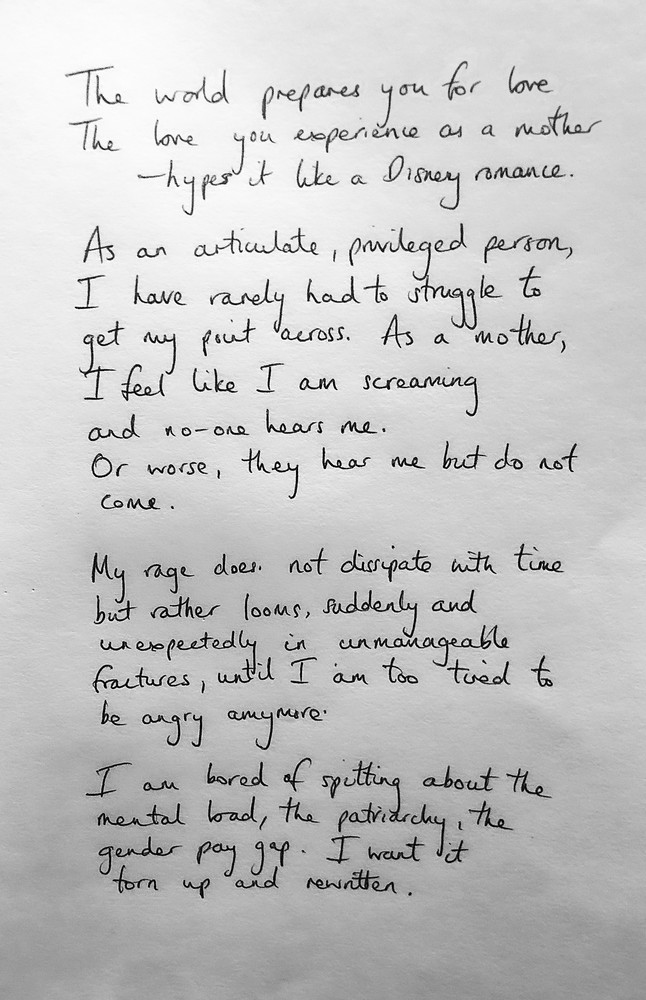 The world prepares you for love
The love you experience as a mother
—hypes it like a Disney romance.
As an articulate, privileged person,
I have rarely had to struggle to
get my point across. As a mother,
I feel like I am screaming
and no-one hears me.
Or worse, they hear me but do not
come.
My rage does not dissipate with time
but rather looms, suddenly and
unexpectedly in unmanageable
fractures, until I am too tired to
be angry anymore.
I am bored of spitting about the
mental load, the patriarchy, the
gender pay gap. I want it
torn up and rewritten.